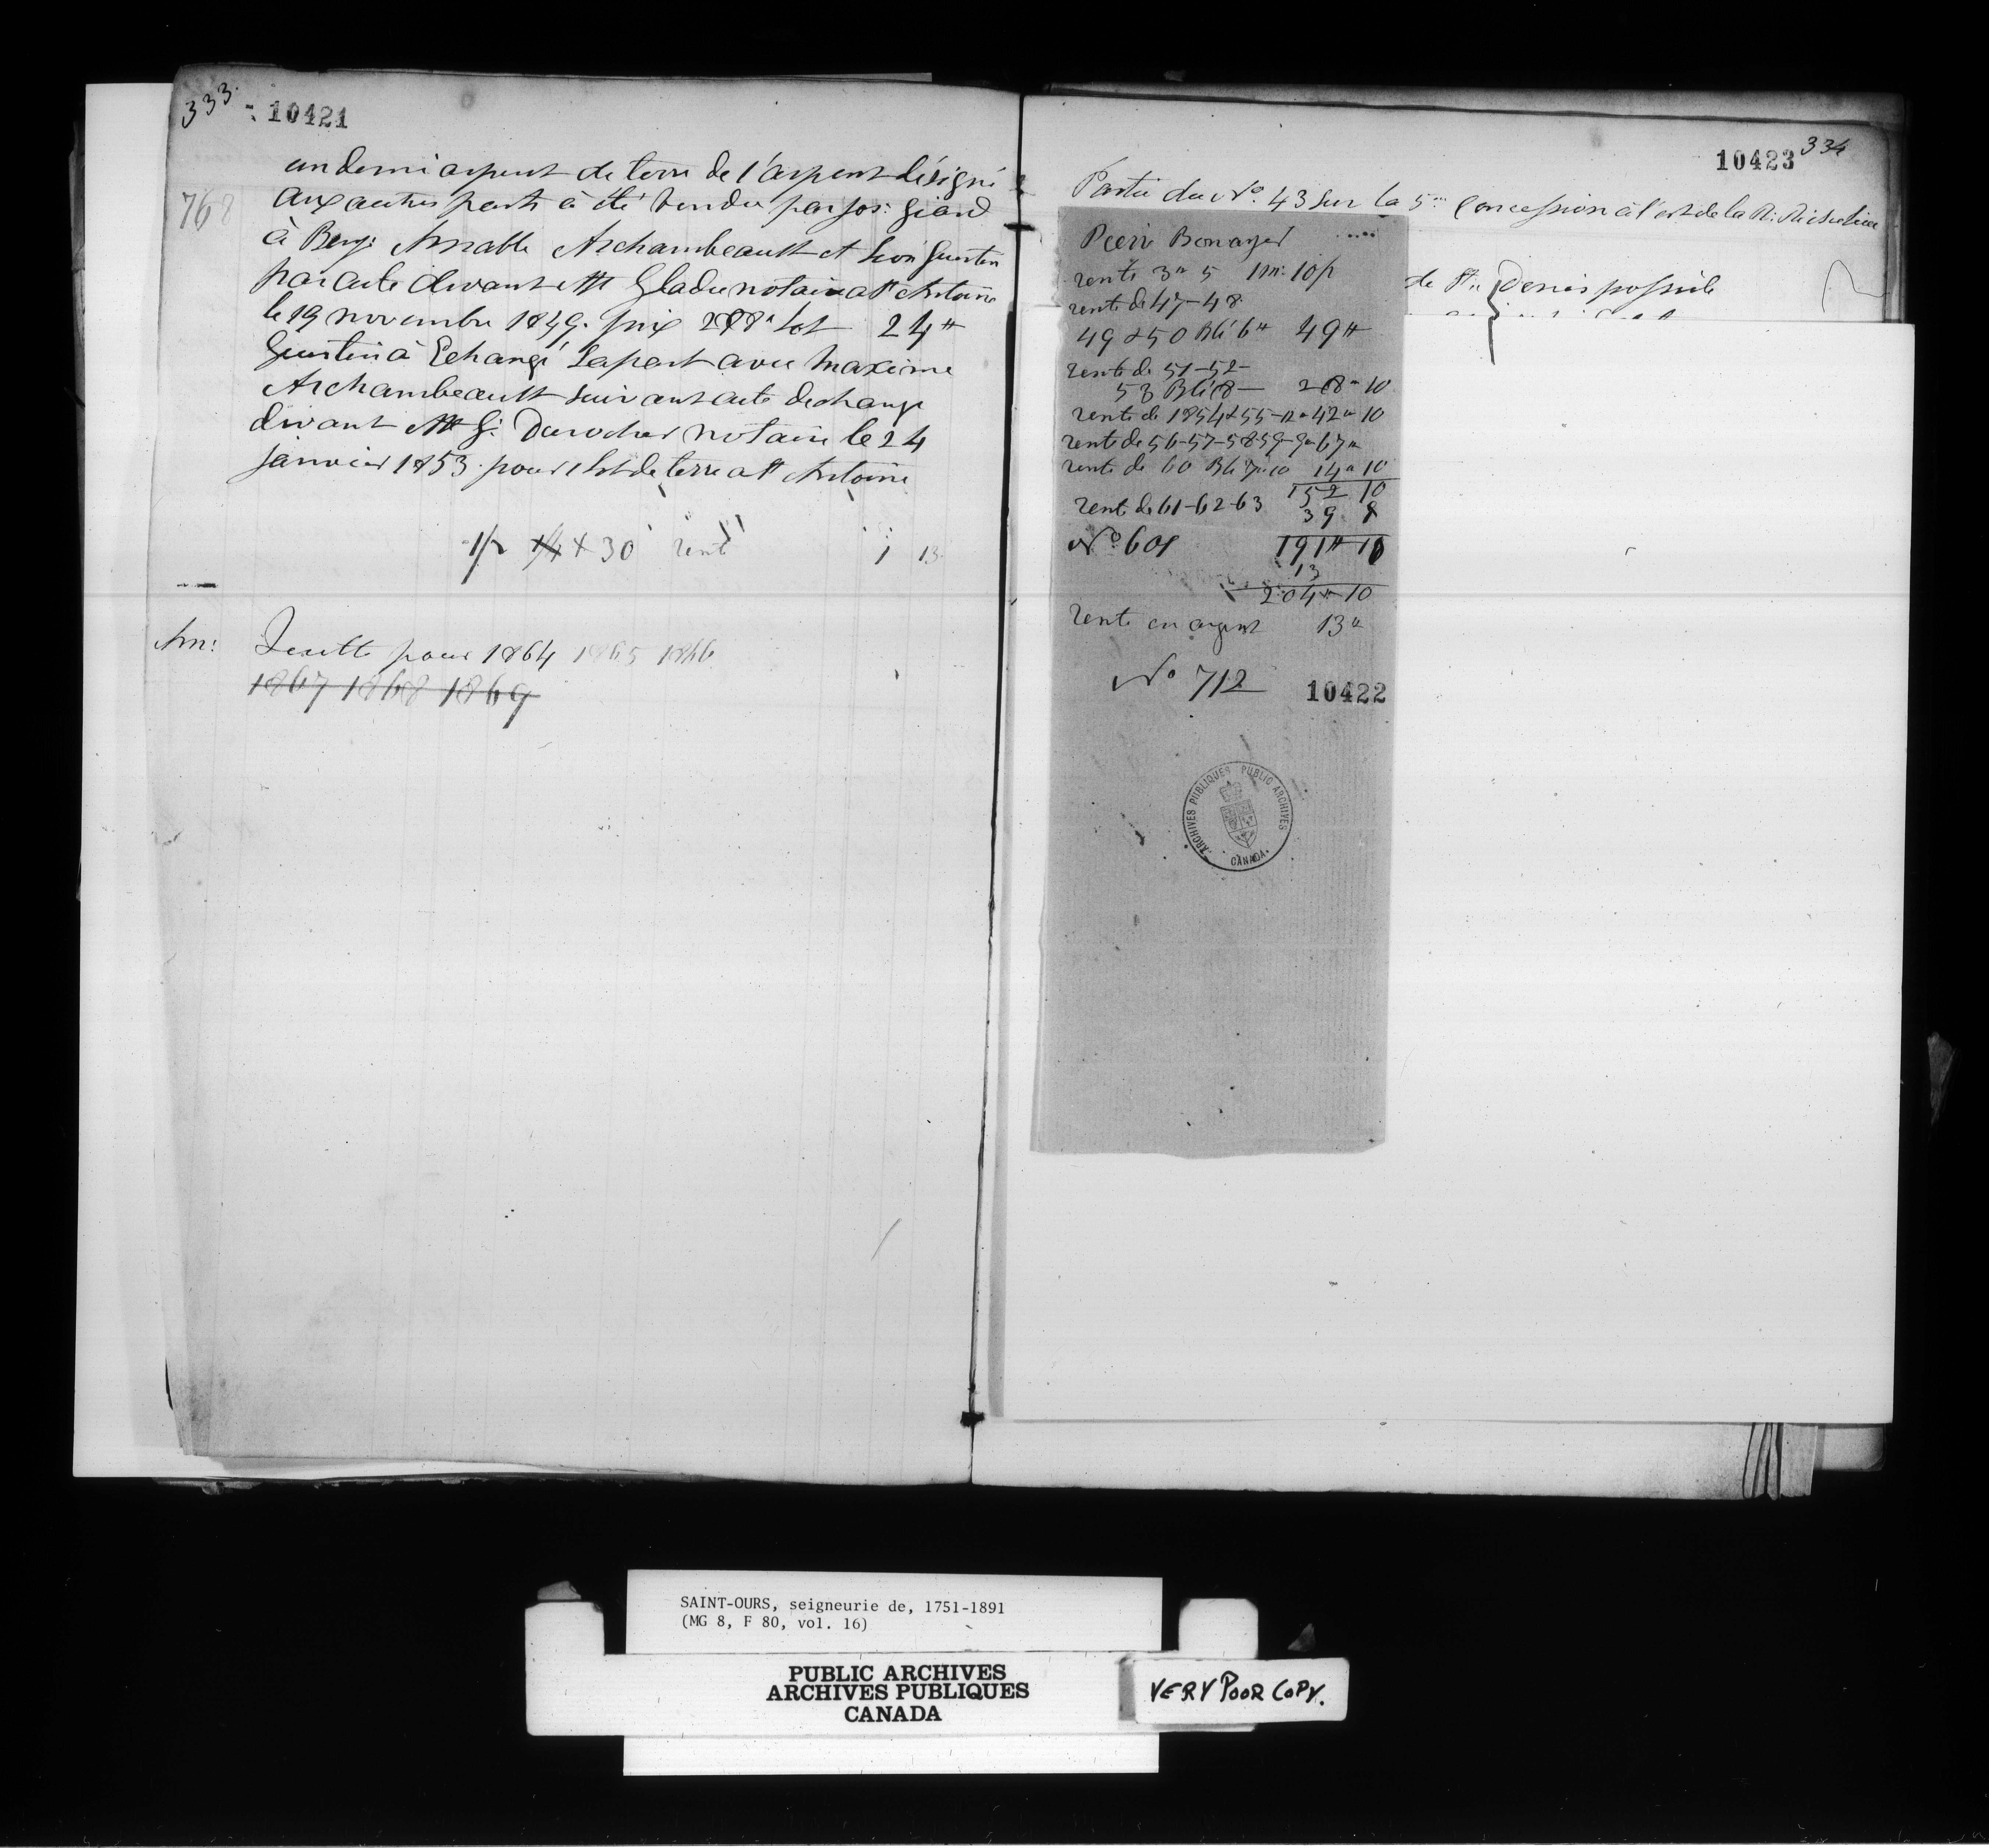 333
10421
un demi arpent de terre de l'arpent désigné
768
aux autres parts à été vendu par Jos: Giard
à Benj: Amable Archambeault et Léon Guertin
par acte devant Mtre Gladu notaire a St Antoine
le 19 novembre 1849. prix 288" Lot 24"
Guertin à Echangé Sa part avec Maxime
Archambeault suivant acte dechange
divant Mtre G: Durocher notaire le 24
janvier 1853. pour 1 lot de terre a St Antoine
1/2 X 30 rent 1 13
Am: Quitte pour 1864 1865 1866
1867 1868 1869
10423
334
Partie du No. 43 sur la 5me Concession à l'est de la R: Richelieu
de St Denis possede
rente 3" 5 1m: 10p
rente de 47-48
49 & 50 Blé 6" 49"
rente de 51-52-
53 Blé 8— 28" 10
rente de 1854 & 55-12" 42" 10
rente de 56-57-58-59-9" 67"
rente de 60 Blé 7"10 14" 10
152 10
rent de 61-62-63 39
No 601 191" 10
13
204" 10
rente en argent 13"
No 712
10422
ARCHIVES PUBLIQUES PUBLIC ARCHIVES
CANADA
SAINT-OURS, seigneurie de, 1751-1891
(MG 8, F 80, vol. 16)
PUBLIC ARCHIVES
ARCHIVES PUBLIQUES
CANADA
VERY POOR COPY.